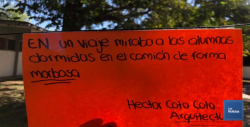 EN un viaje miraba a las alumnas
dormidas en el camión de forma
morbosa
Hector Cota Cota.
Arquitectu